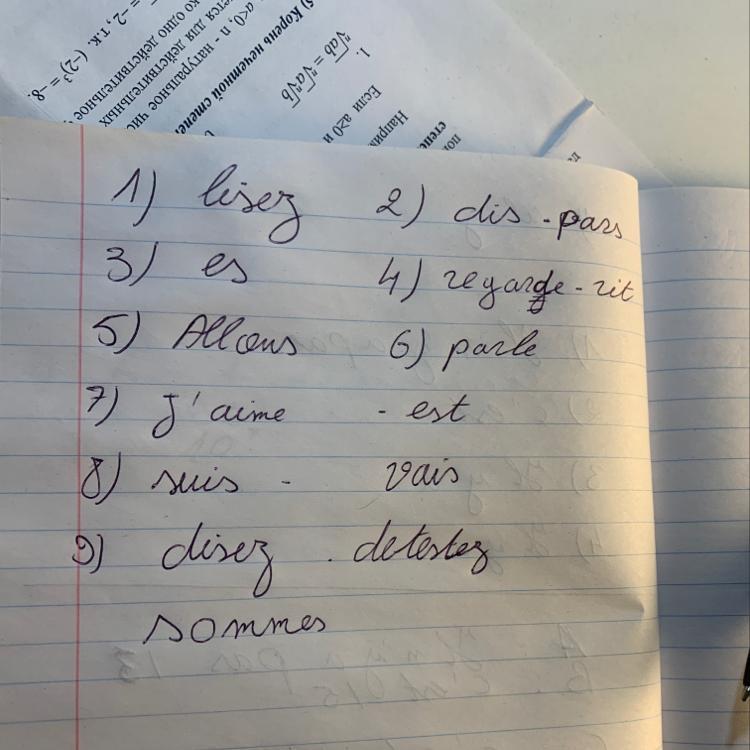 степе
Наприм
Если a≥0 и
1.
ⁿ√ab = ⁿ√a ⁿ√b
5) Корень нечетной степен
a<0, n - натуральное чис
ется для действительных
ко одно действительное
= -2, т.к. (-2)³ = -8.
1) lisez 2) dis - pars
3) es 4) regarde - rit
5) Allons 6) parle
7) J'aime - est
8) suis - vais
9) disez - detestez
sommes